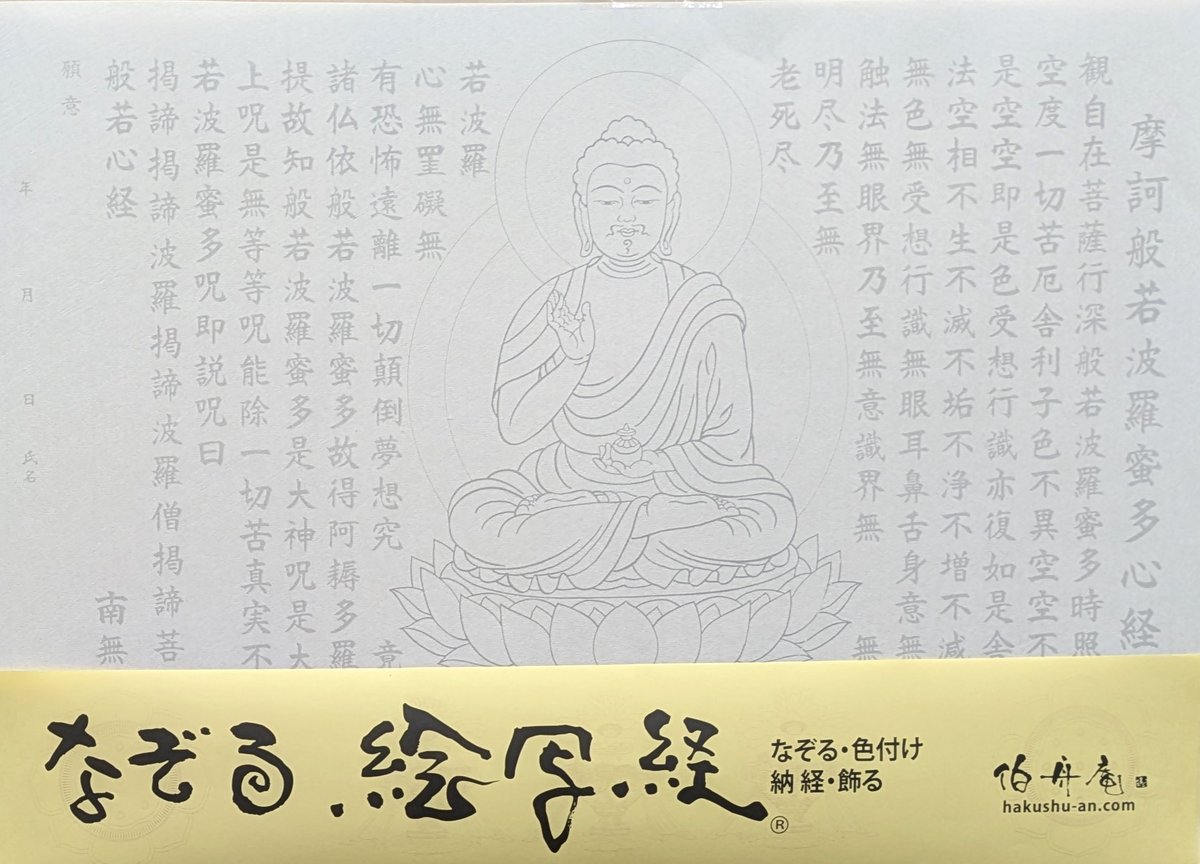 摩訶般若波羅蜜多心経
観自在菩薩行深般若波羅蜜多時照
空度一切苦厄舎利子色不異空空不
是空空即是色受想行識亦復如是舎
法空相不生不滅不垢不浄不増不減
無色無受想行識無眼耳鼻舌身意無
触法無眼界乃至無意識界無 無
明尽乃至無
老死尽
若波羅
心無罣礙無
有恐怖遠離一切顛倒夢想究 竟
諸仏依般若波羅蜜多故得阿耨多羅
提故知般若波羅蜜多是大神呪是大
上呪是無等等呪能除一切苦真実不
若波羅蜜多呪即説呪曰
掲諦掲諦波羅掲諦波羅僧掲諦菩
般若心経 南無
願意
年 月 日 氏名
なぞる絵写経®
なぞる・色付け
納経・飾る
伯舟庵
hakushu-an.com